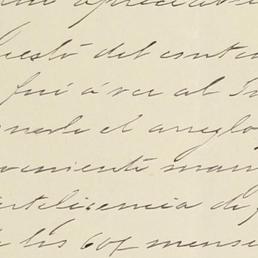 apreciable
uestó del contra
fué á ver al
nerle el arreglo
veniente man
nteligencia de
los 60$ mensu